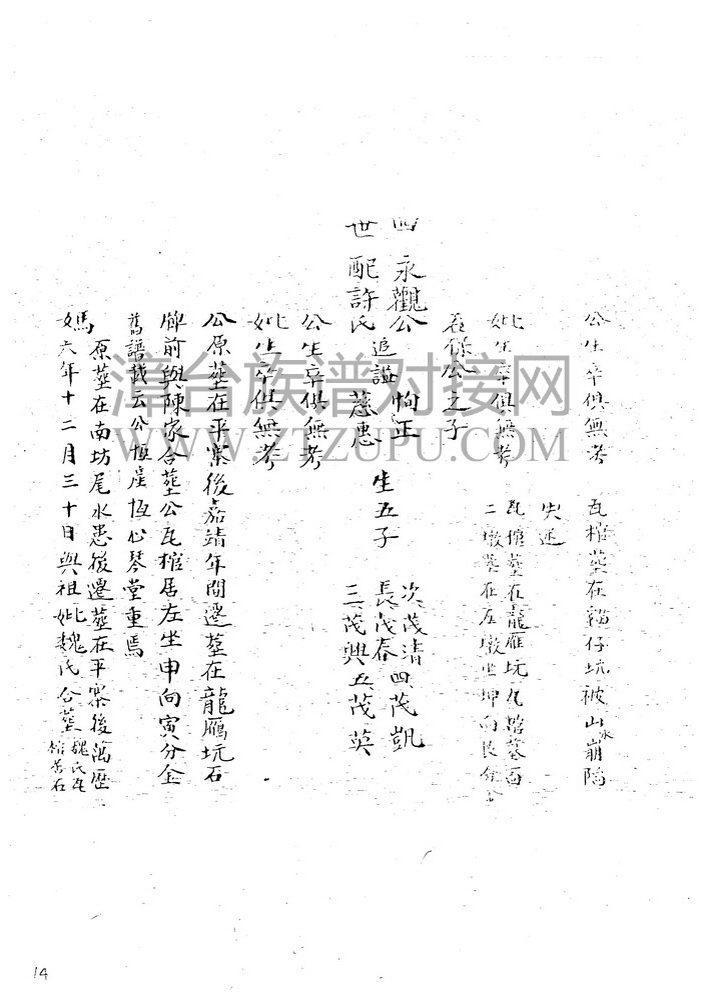 公生卒俱無考 瓦棺葬在貓仔坑被山水崩陷
失迷
妣生卒俱無考 瓦棺葬在龍雁坑瓦棺墓面
二墩葬在左墩坐坤向艮分金
公之子
四世 永觀公 追謚 恂正 生五子 次茂清四茂凱
配許氏 慈惠 長茂春
三茂興五茂英
公生卒俱無考
妣生卒俱無考
公原葬在平寨後嘉靖年間遷葬在龍雁坑石
牌前與陳家合葬公瓦棺居左坐申向寅分金
舊譜載云公恆崖恆心琴堂重焉
媽原葬在南坊尾水患後遷葬在平寨後萬歷
六年十二月三十日與祖妣魏氏合葬 魏氏瓦棺
漳台族谱对接网
WWW.ZTZUPU.COM
14